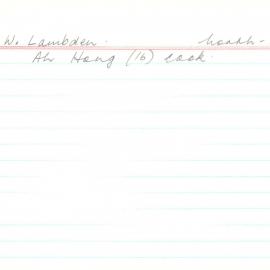 W. Lambden.
Ah Hong (16) cook.